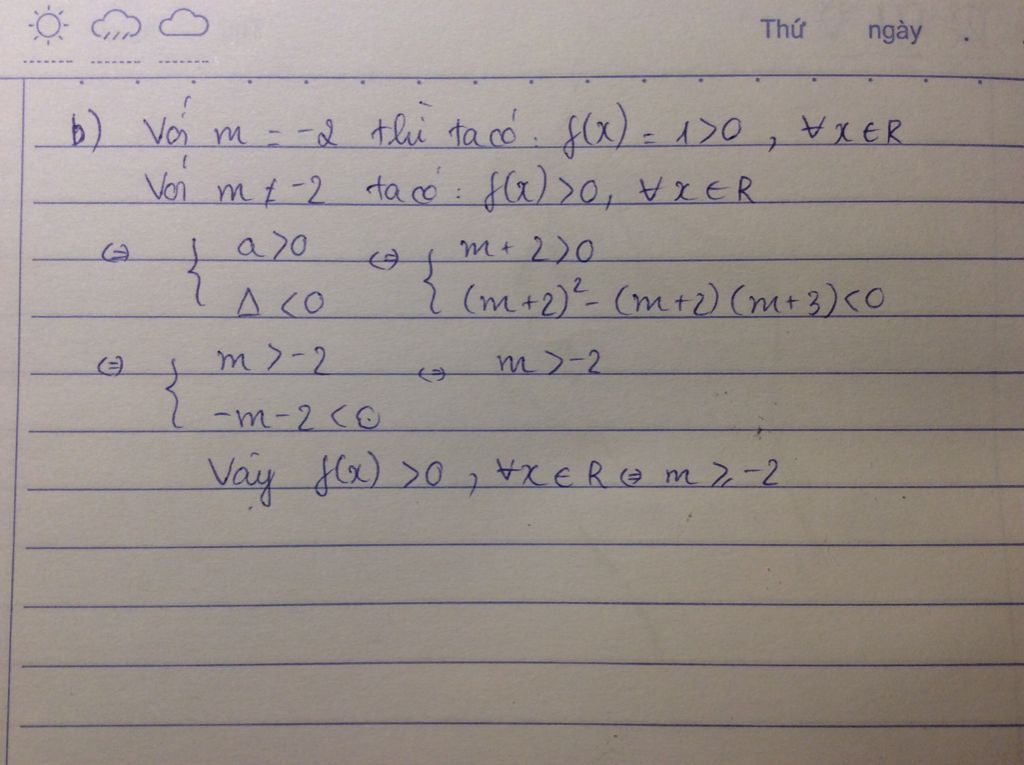 Thứ ngày .
b) Với m = -2 thì ta có : f(x) = 1>0 , ∀x∈R
Với m ≠ -2 ta có : f(x) >0, ∀x∈R
⇔ { a>0 ⇔ { m+2>0
Δ <0 (m+2)² - (m+2)(m+3)<0
⇔ { m >-2 ⇔ m >-2
-m-2 <0
Vậy f(x) >0 , ∀x∈R ⇔ m ⩾ -2